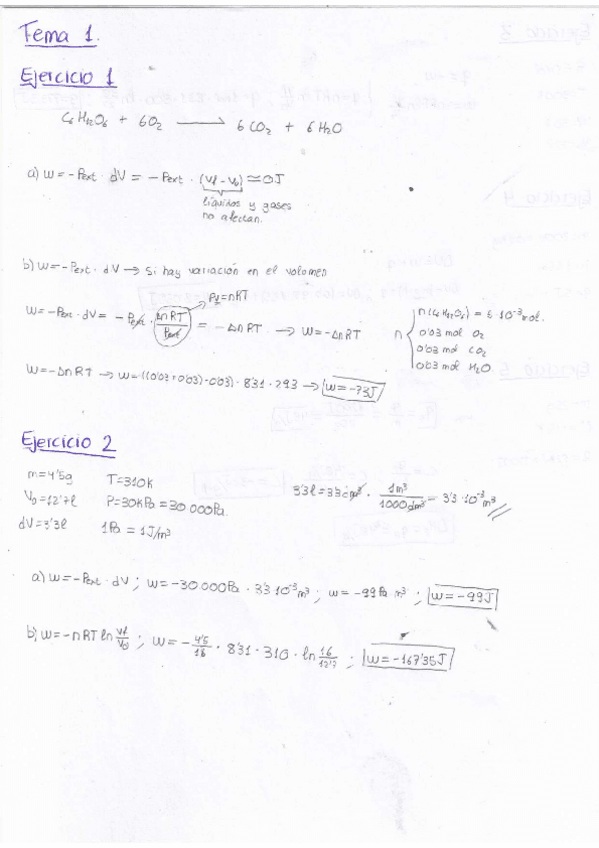 Tema 1.
Ejercicio 1
C6H12O6 + 6O2 → 6CO2 + 6H2O
a) W = -Pext · dV = -Pext · (Vf - V0) ≃ 0J
líquidos y gases
no afectan.
b) W = -Pext · dV → Si hay variación en el volumen
PV = nRT
W = -Pext · dV = -Pext · ΔnRT/Pext = -ΔnRT → W = -ΔnRT
n { n(C6H12O6) = 6·10⁻³ mol.
0'03 mol O2
0'03 mol CO2
0'03 mol H2O
W = -ΔnRT → W = -((0'03+0'03)-0'03) · 8'31 · 293 → W = -73J
Ejercicio 2
m = 4'5g T = 310K
V0 = 12'7l P = 30KPa = 30000Pa.
dV = 3'3l 1Pa = 1J/m³
3'3l = 3'3dm³ · 1m³/1000dm³ = 3'3·10⁻³m³
a) W = -Pext · dV ; W = -30.000Pa · 3'3·10⁻³m³ ; W = -99Pa m³ ; W = -99J
b) W = -nRT ln Vf/V0 ; W = -4'5/16 · 8'31 · 310 · ln 16/12'7 ; W = -167'35J